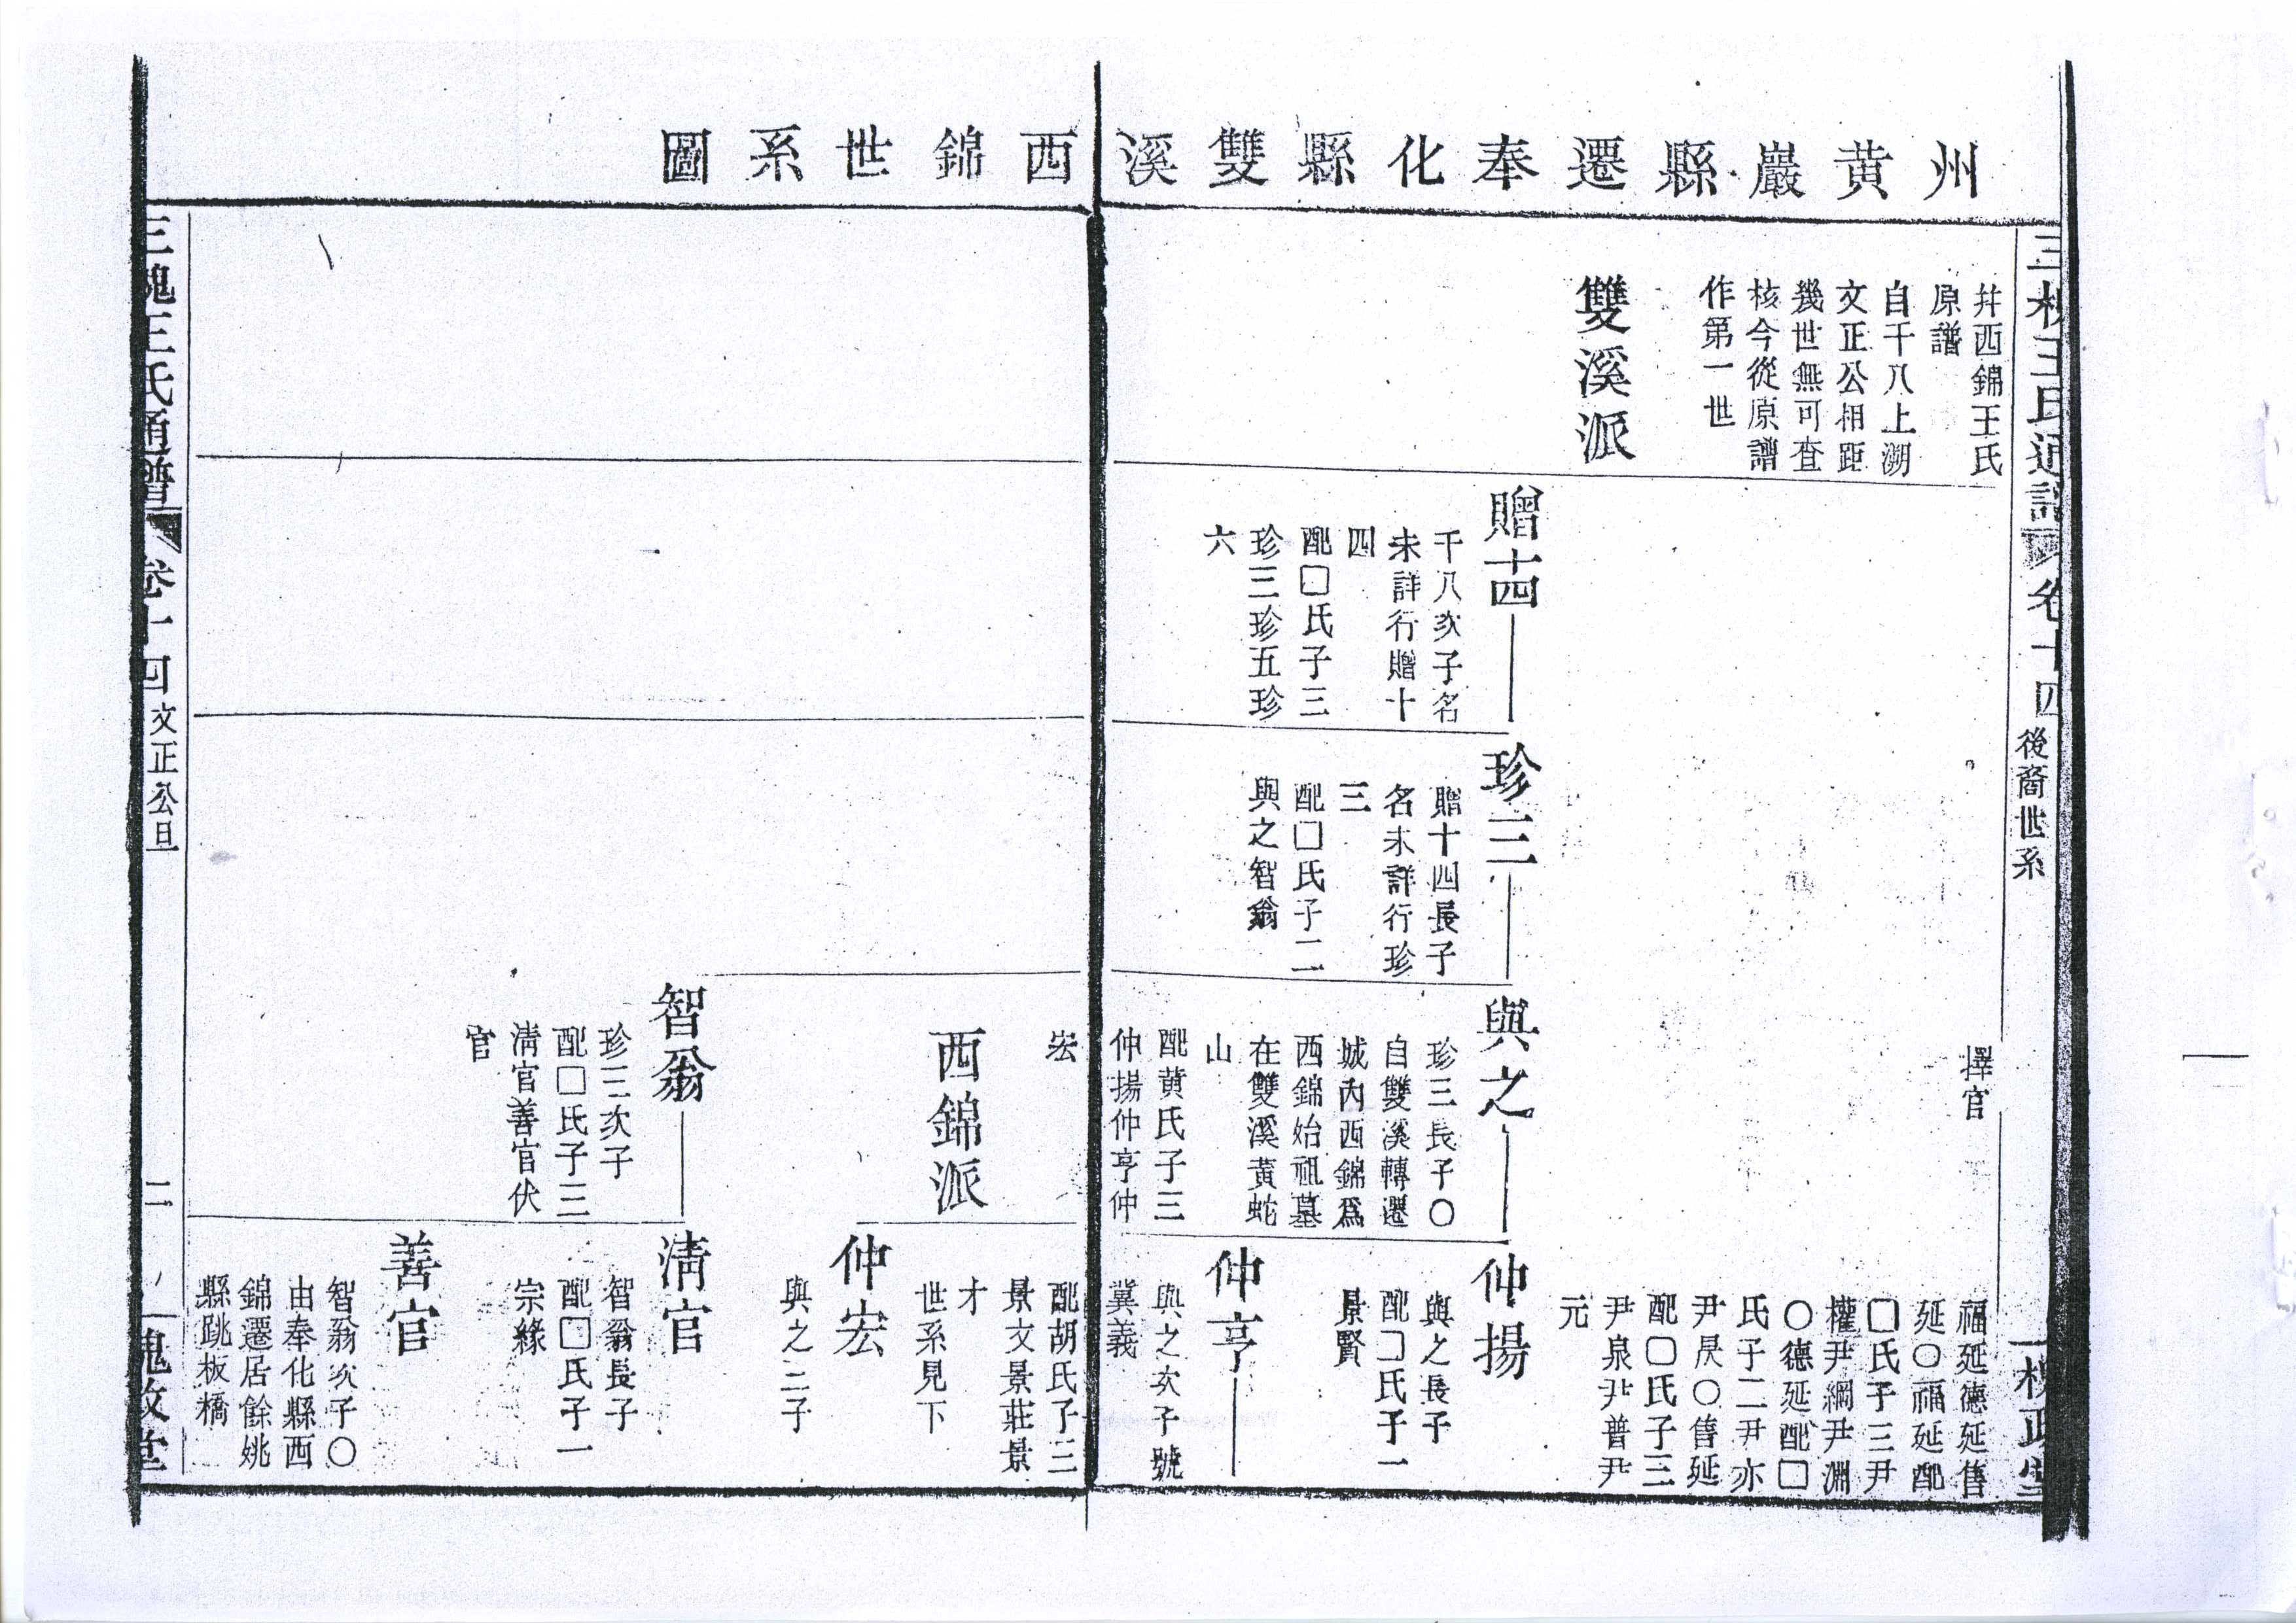 州黄巖縣遷奉化縣雙溪西錦世系圖
三槐王氏通譜
卷十四
後裔世系
三槐王氏通譜
卷十四
文正公旦
二
槐政堂
幷西錦王氏
原譜
自千八上溯
文正公相距
幾世無可查
核今從原譜
作第一世
雙溪派
贈十四
千八次子名
未詳行贈十
四
配□氏子三
珍三珍五珍
六
珍三
贈十四長子
名未詳行珍
三
配□氏子二
與之智翁
擇官
與之
珍三長子○
自雙溪轉遷
城內西錦爲
西錦始祖墓
在雙溪黃蛇
山
配黃氏子三
仲揚仲亨仲
宏
西錦派
智翁
珍三次子
配□氏子三
淸官善官伏
官
福延德延售
延○福延配
□氏子三尹
權尹綱尹淵
○德延配□
氏子二尹亦
尹昃○售延
配□氏子三
尹泉尹普尹
元
仲揚
與之長子
配□氏子一
景賢
仲亨
與之次子號
冀義
配胡氏子三
景文景莊景
才
世系見下
仲宏
與之三子
淸官
智翁長子
配□氏子一
宗緣
善官
智翁次子○
由奉化縣西
錦遷居餘姚
縣跳板橋